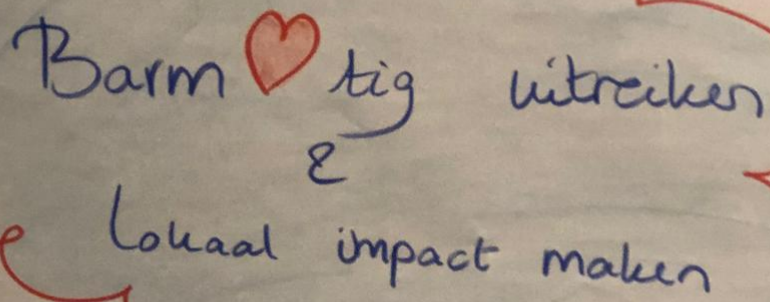 Barm❤tig uitreiken
&
Lokaal impact maken